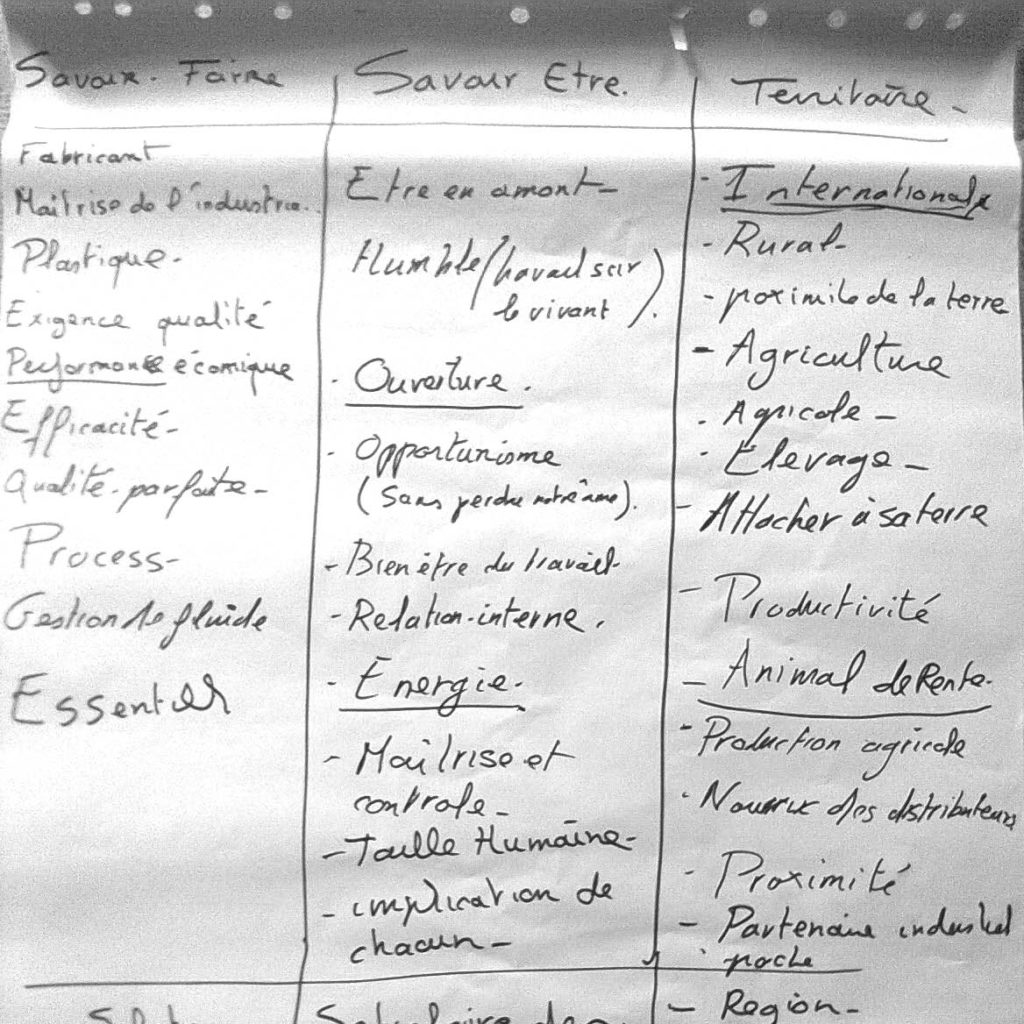 Savoir-Faire
Fabricant
Maîtrise de l'industrie..
Plastique-
Exigence qualité
Performance écomique
Efficacité-
Qualité-parfaite-
Process-
Gestion de fluide
Essentiel
Savoir Etre.
Etre en amont-
Humble (travail sur
le vivant).
. Ouverture.
. Opportunisme
(sans perdre notre âme).
- Bien être du travail-
- Relation-interne.
- Energie-
- Maîtrise et
controle-
- Taille Humaine-
- implication de
chacun-
Territoire-
- Internationale
- Rural-
- proximité de la terre
- Agriculture
. Agricole-
- Elevage-
- Attacher à sa terre
- Productivité
- Animal de Rente-
- Production agricole
- des distributeurs
- Proximité
- Partenaire industriel
proche
- Region-